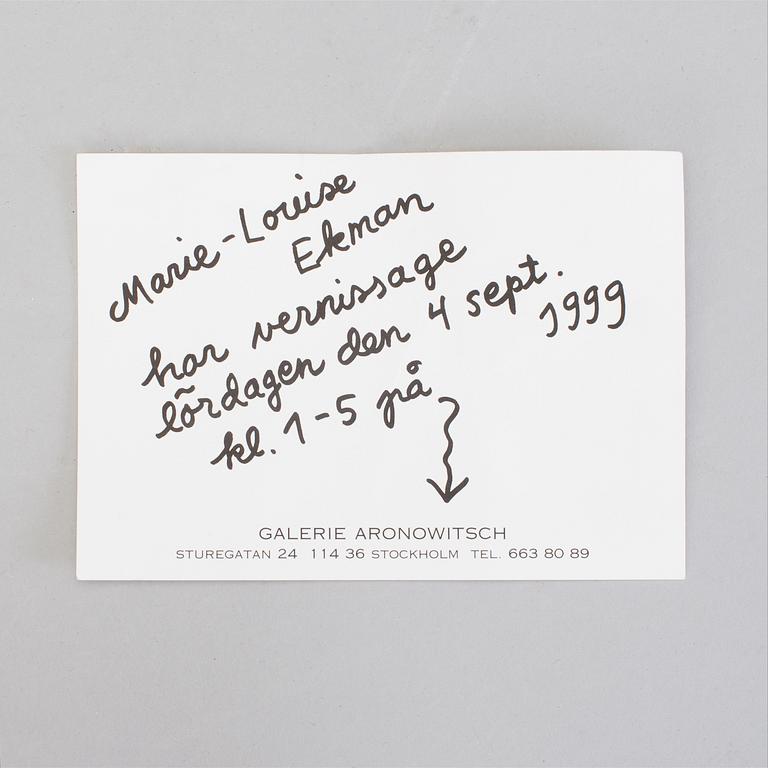 Marie-Louise
Ekman
har vernissage
lördagen den 4 sept.
1999
kl. 1-5 på
GALERIE ARONOWITSCH
STUREGATAN 24 114 36 STOCKHOLM TEL. 663 80 89